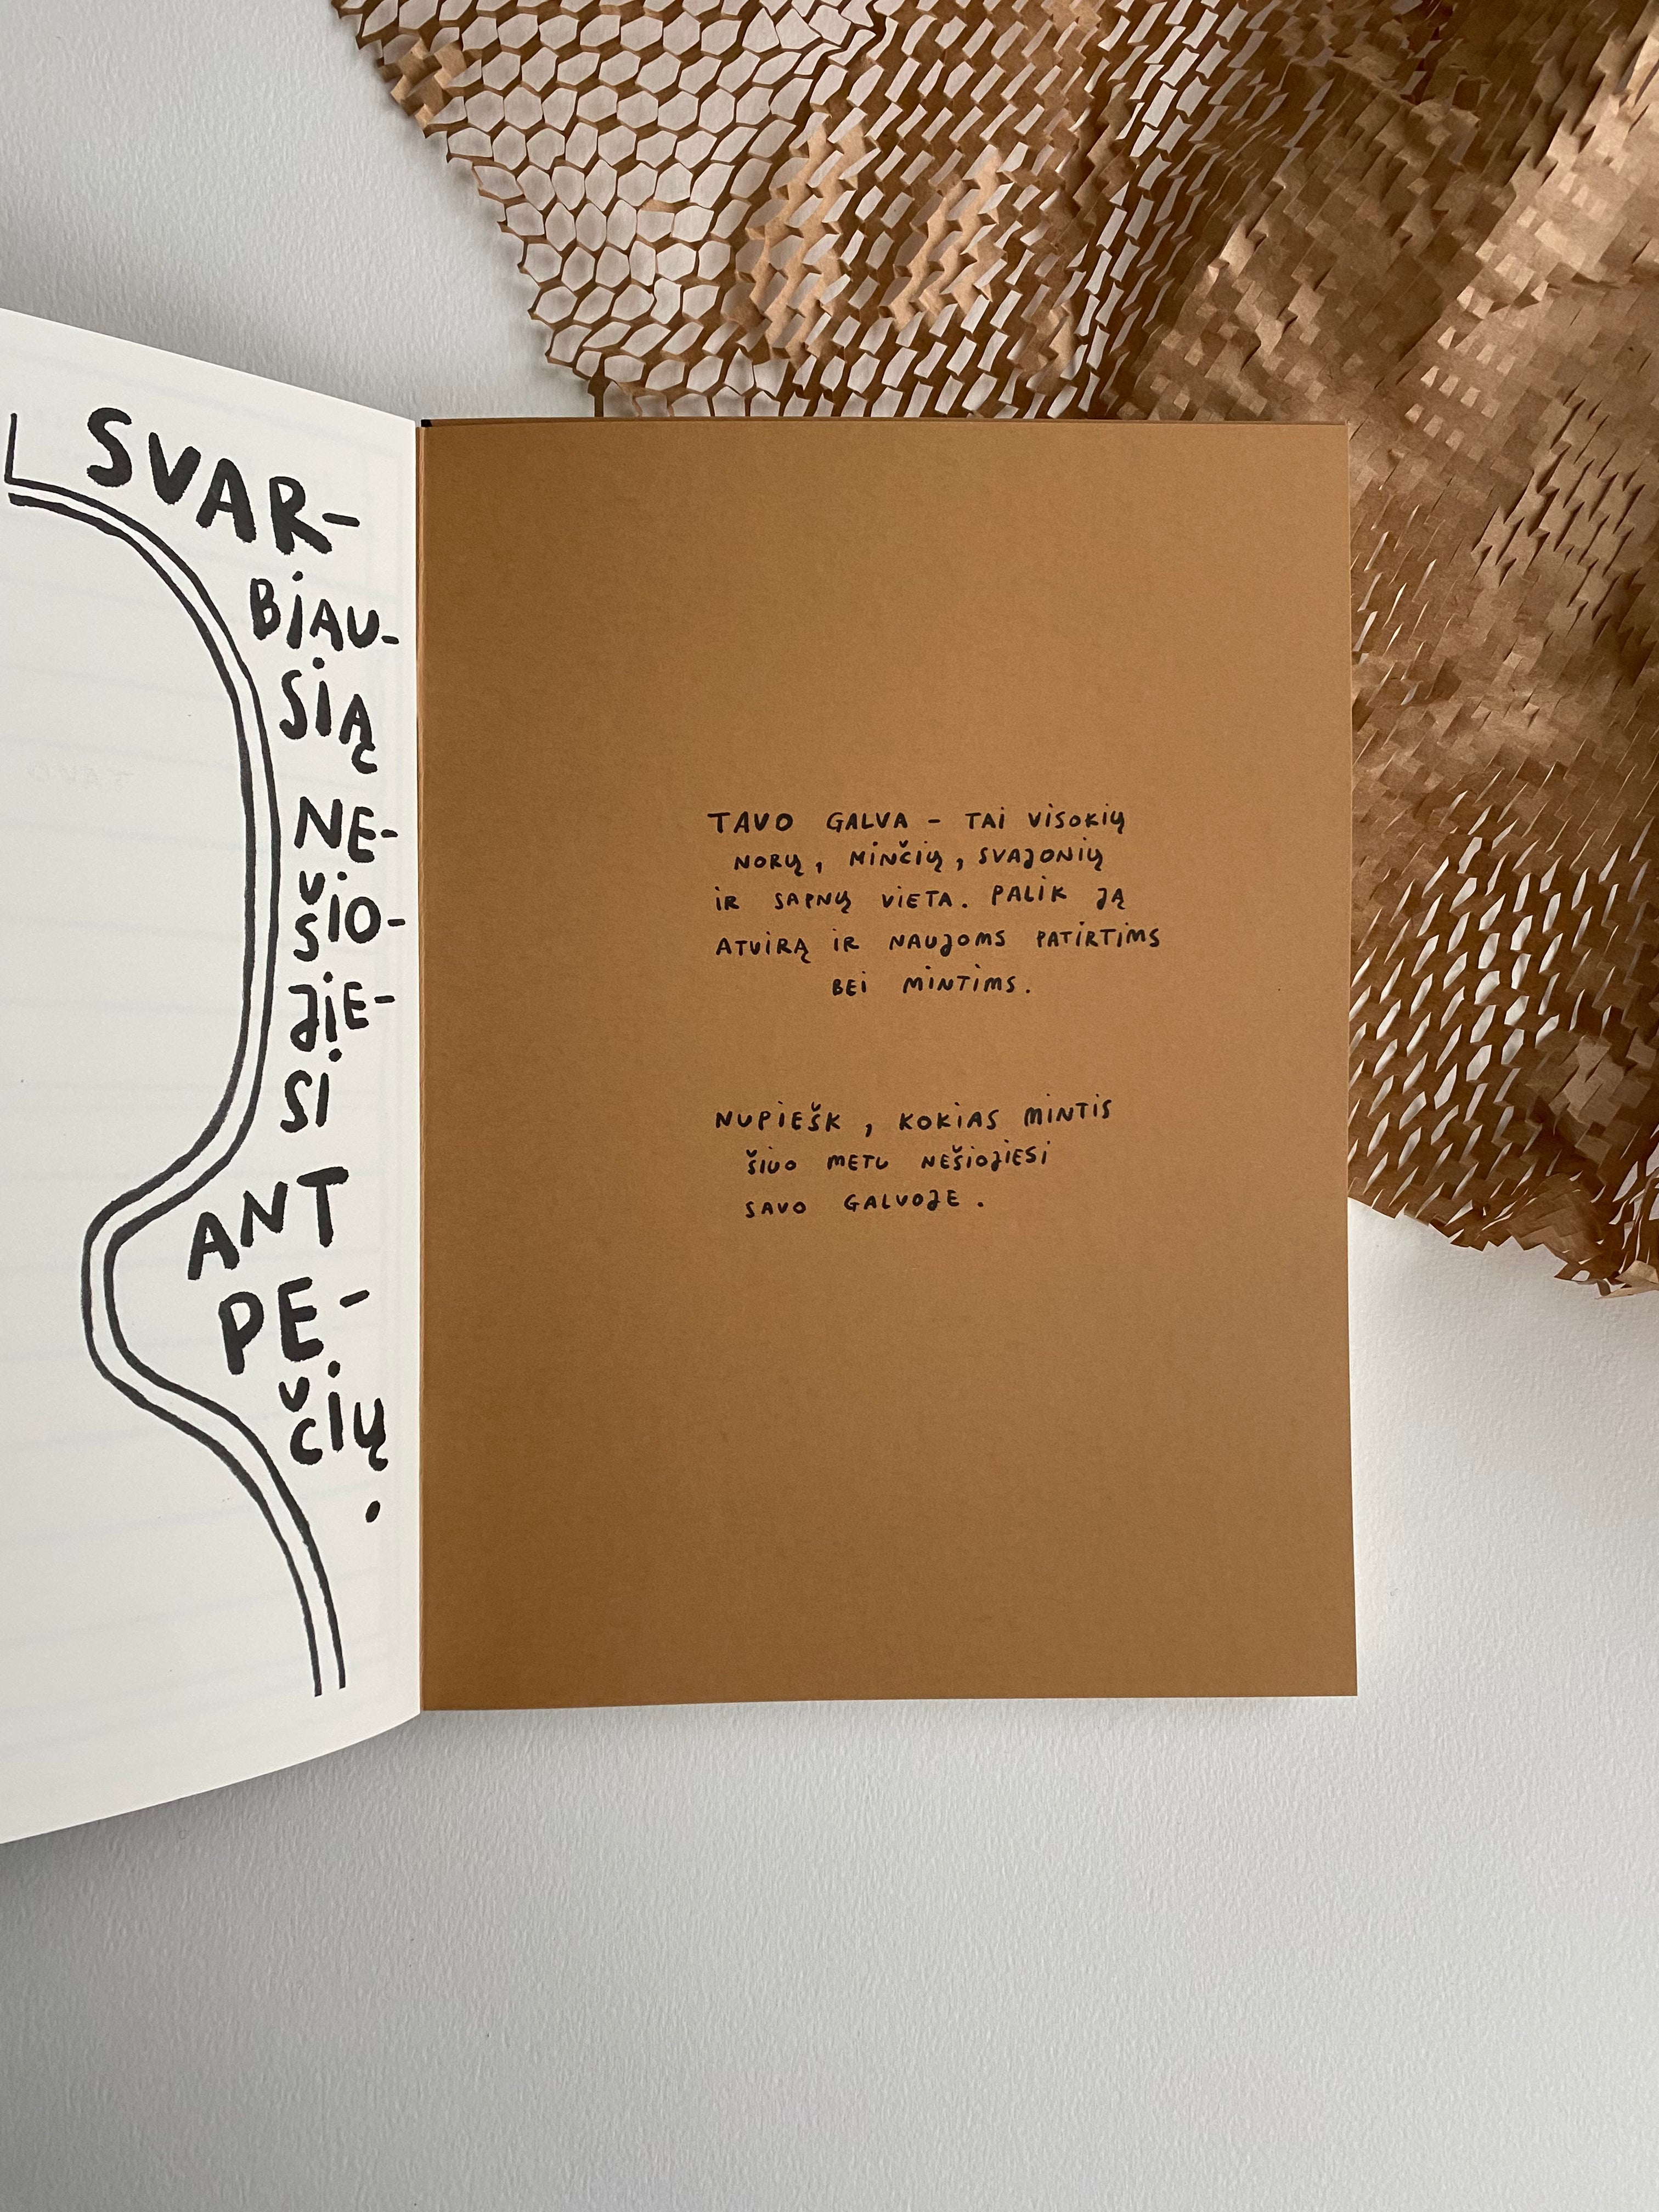 SVAR-
BIAU-
SIĄ
NE-
ŠIO-
JIE-
SI
ANT
PE-
ČIŲ
.
TAVO GALVA – TAI VISOKIŲ
NORŲ, MINČIŲ, SVAJONIŲ
IR SAPNŲ VIETA. PALIK JĄ
ATVIRĄ IR NAUJOMS PATIRTIMS
BEI MINTIMS.
NUPIEŠK, KOKIAS MINTIS
ŠIUO METU NEŠIOJIESI
SAVO GALVOJE.